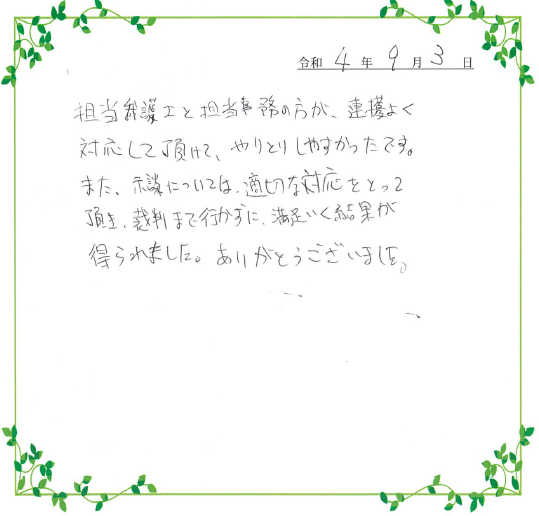 令和 4 年 9 月 3 日
担当弁護士と担当事務の方が、連携よく
対応して頂けて、やりとりしやすかったです。
また、示談については、適切な対応をとって
頂き、裁判まで行かずに、満足いく結果が
得られました。ありがとうございました。